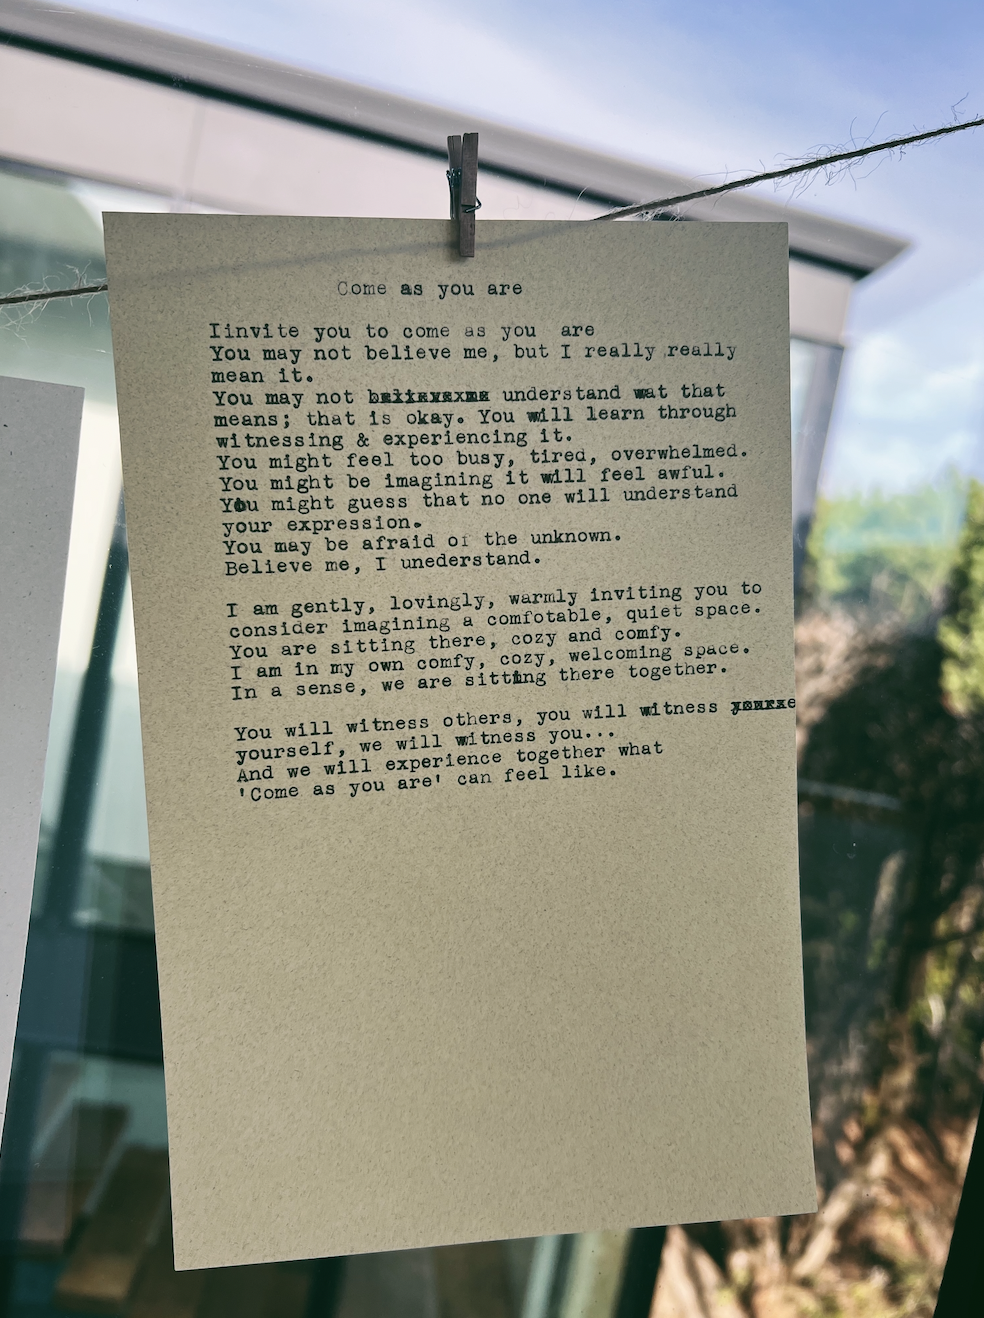 Come as you are
Iinvite you to come as you are
You may not believe me, but I really really
mean it.
You may not understand wat that
means; that is okay. You will learn through
witnessing & experiencing it.
You might feel too busy, tired, overwhelmed.
You might be imagining it will feel awful.
You might guess that no one will understand
your expression.
You may be afraid of the unknown.
Believe me, I unederstand.
I am gently, lovingly, warmly inviting you to
consider imagining a comfotable, quiet space.
You are sitting there, cozy and comfy.
I am in my own comfy, cozy, welcoming space.
In a sense, we are sitting there together.
You will witness others, you will witness
yourself, we will witness you...
And we will experience together what
'Come as you are' can feel like.